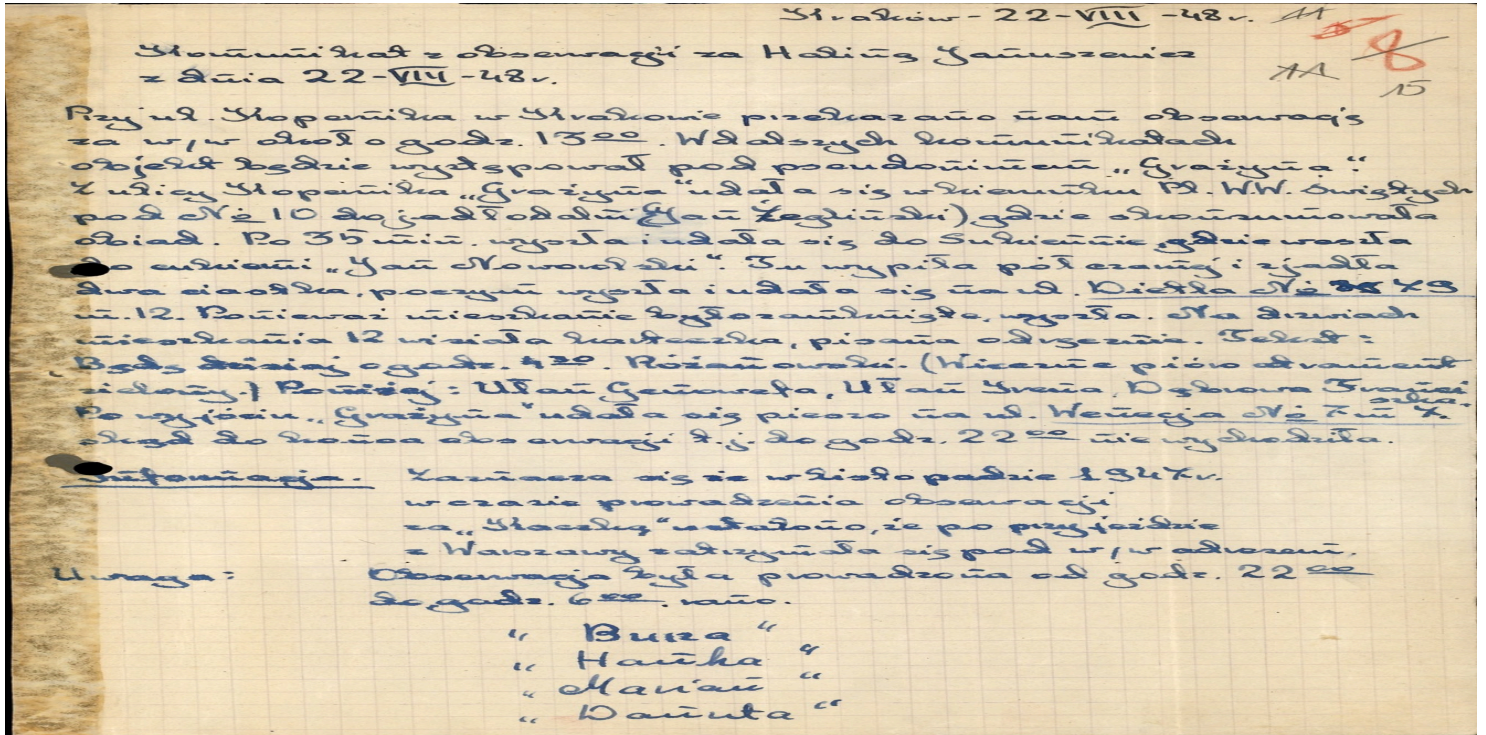 Kraków - 22 - VIII - 48 r. 11
8
Komunikat z obserwacji za Haliną Januszewicz
z dnia 22 - VIII - 48 r. 11
15
Przy ul. Kopernika w Krakowie przekazano nam obserwację
za w/w około godz. 13 00. W dalszych komunikatach
objekt będzie występował pod pseudonimem „Grażyna".
Z ulicy Kopernika „Grażyna" udała się w kierunku Pl. WW. Świętych
pod № 10 do jadłodalni (Jan Żegliński), gdzie skonsumowała
obiad. Po 35 min. wyszła i udała się do Sukiennic, gdzie weszła
do cukierni „Jan Noworolski". Tu wypiła pół czarnej i zjadła
dwa ciastka, poczym wyszła i udała się na ul. Dietla №
m. 12. Ponieważ mieszkanie było zamknięte, wyszła. Na drzwiach
mieszkania 12 wisiała karteczka, pisana odręcznie. Tekst:
Będę dzisiaj o godz. 4 30. Różanowski. (Wieczne pióro atrament
zielony.) Poniżej: Ułan Genowefa, Ułan Irena, Dąbrowa Franci
szka.
Po wyjściu „Grażyna" udała się pieszo na ul. Wenecja № 7 m 7.
skąd do końca obserwacji t.j. do godz. 22 00 nie wychodziła.
Informacja. Zaznacza się że w listopadzie 1947 r.
w czasie prowadzenia obserwacji
za „Kaczką" ustalono, że po przyjeździe
z Warszawy zatrzymała się pod w/w adresem.
Uwaga: Obserwacja była prowadzona od godz. 22 00
do godz. 6 00. rano.
„ Burza "
„ Hanka "
„ Marian "
„ Danuta "